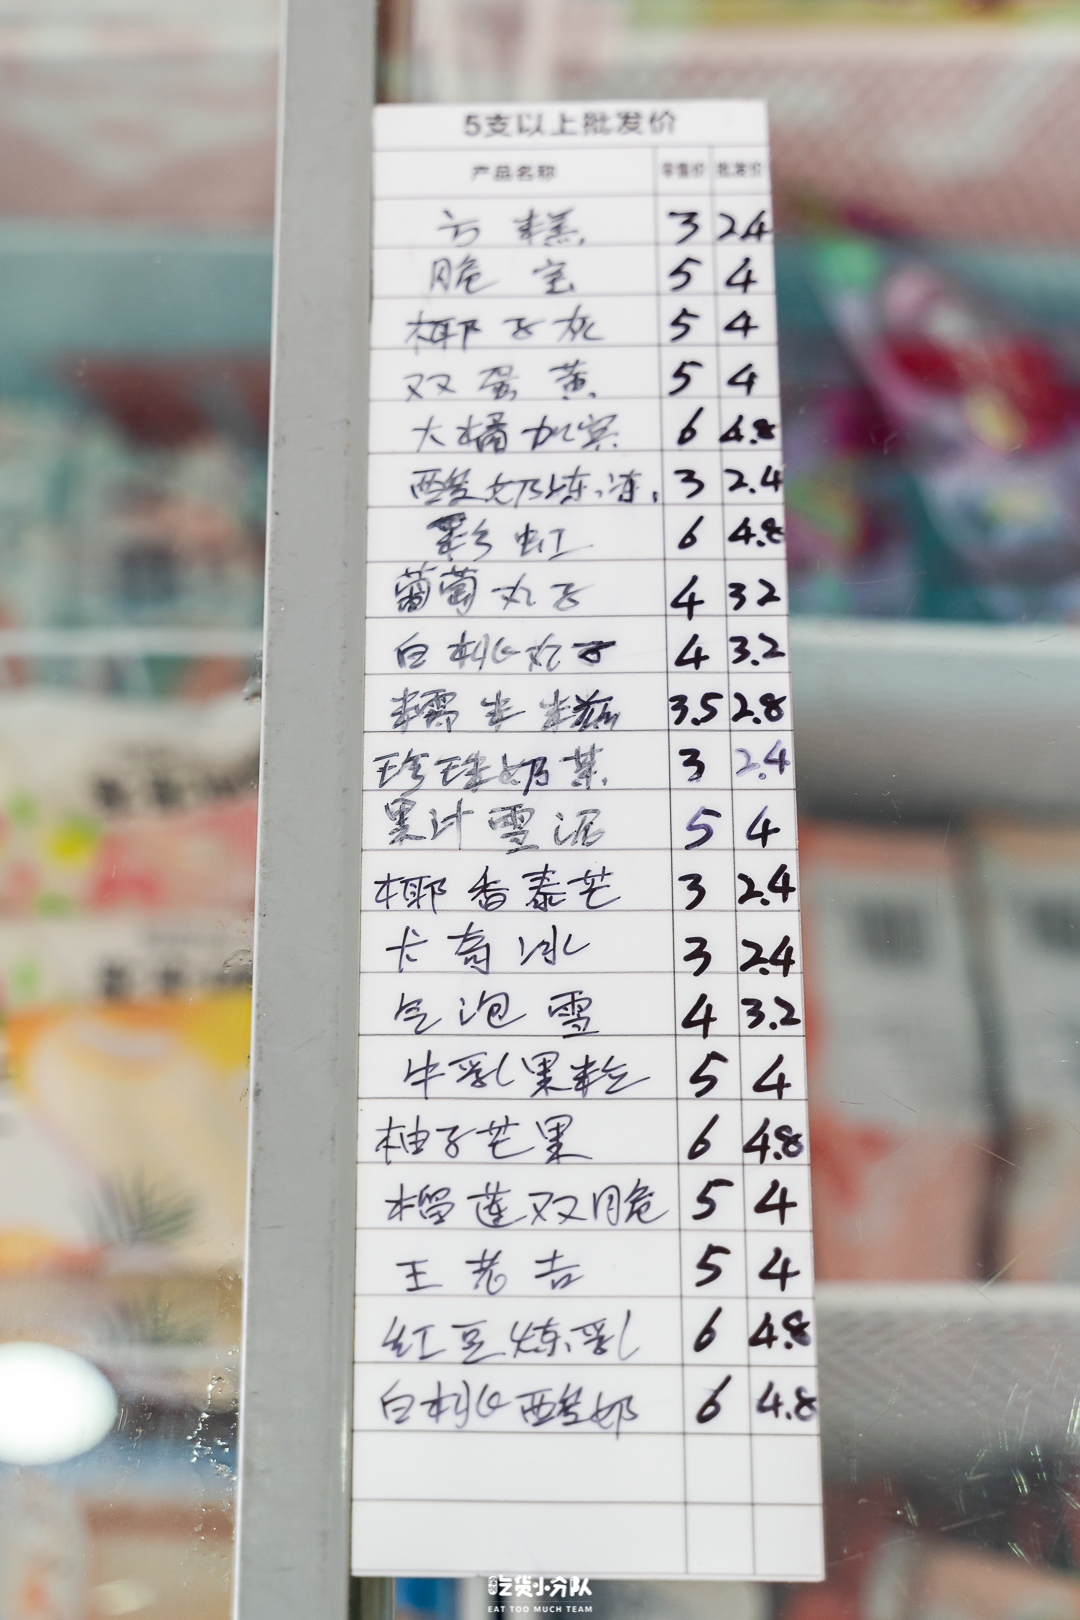 5支以上批发价
产品名称 零售价 批发价
方糕 3 2.4
脆宝 5 4
椰子灰 5 4
双蛋黄 5 4
大橘加宾 6 4.8
酸奶冻冻 3 2.4
彩虹 6 4.8
葡萄丸子 4 3.2
白桃丸子 4 3.2
糯米米糍 3.5 2.8
珍珠奶茶 3 2.4
果汁雪泥 5 4
椰香泰芒 3 2.4
卡奇冰 3 2.4
气泡雪 4 3.2
牛乳果粒 5 4
柚子芒果 6 4.8
榴莲双脆 5 4
王老吉 5 4
红豆炼乳 6 4.8
白桃酸奶 6 4.8
吃货小分队
EAT TOO MUCH TEAM